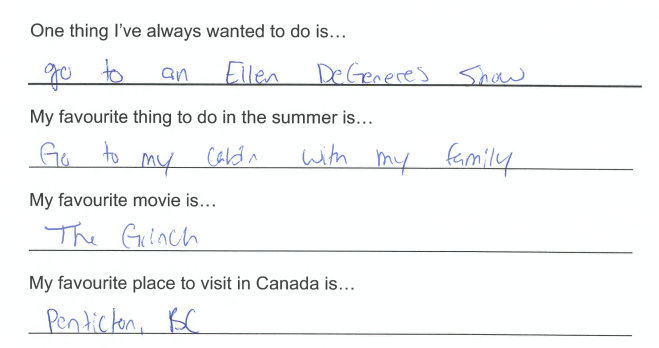 One thing I've always wanted to do is…
go to an Ellen DeGeneres Show
My favourite thing to do in the summer is…
Go to my cabin with my family
My favourite movie is…
The Grinch
My favourite place to visit in Canada is…
Penticton, BC